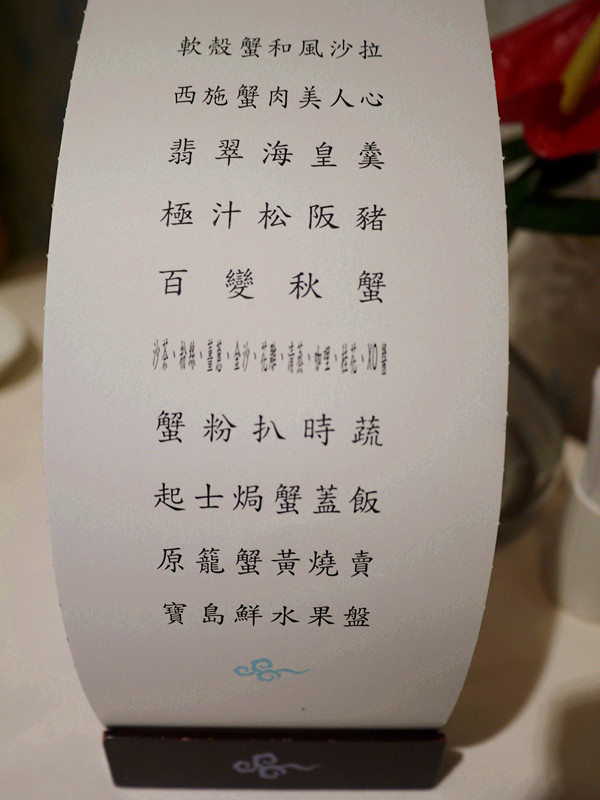 軟殼蟹和風沙拉
西施蟹肉美人心
翡翠海皇羹
極汁松阪豬
百變秋蟹
沙茶、粉絲、薑蔥、金沙、花雕、清蒸、咖哩、桂花、XO醬
蟹粉扒時蔬
起士焗蟹蓋飯
原籠蟹黃燒賣
寶島鮮水果盤